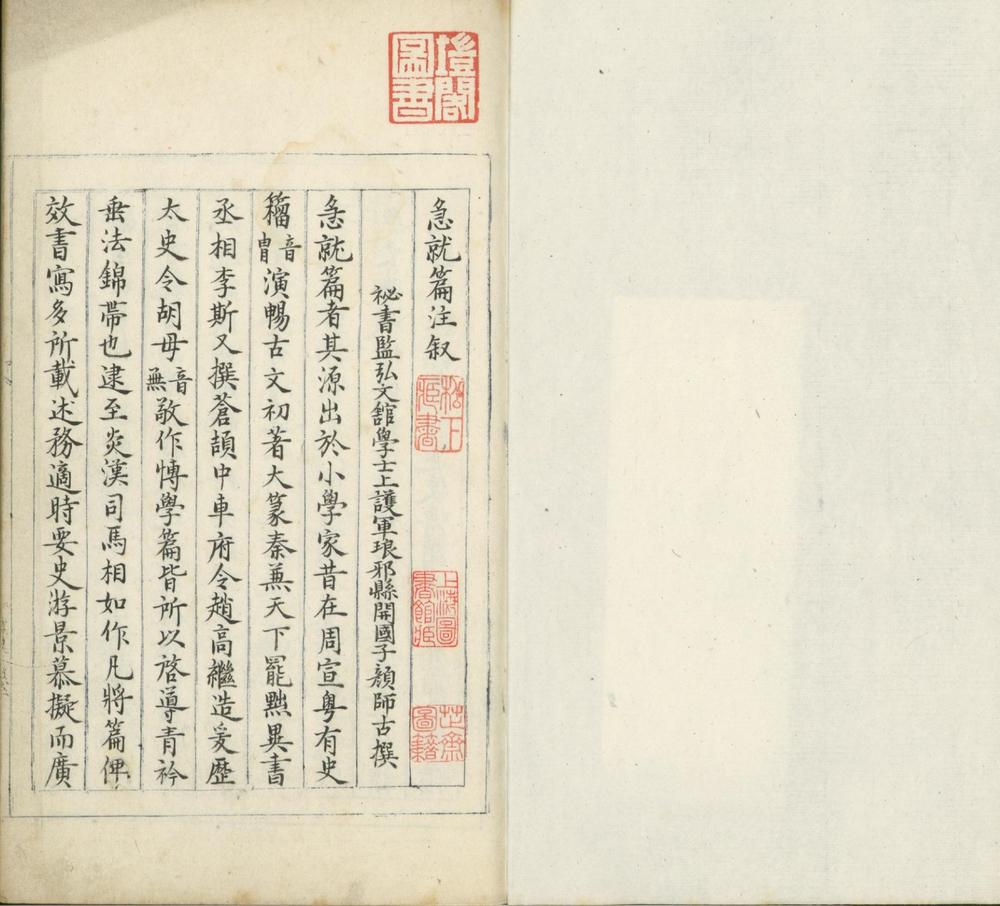 急就篇注叙
祕書監弘文舘學士上護軍琅邪縣開國子顔師古撰
急就篇者其源出於小學家昔在周宣粤有史
籀音胄演暢古文初著大篆秦蒹天下罷黜異書
丞相李斯又撰蒼頡中車府令趙高繼造爰歷
太史令胡毋音無敬作愽學篇皆所以啓導青衿
垂法錦帶也逮至炎漢司馬相如作凡將篇俾
效書寫多所載述務適時要史游景慕擬而廣
松下
藏書
上海圖
書館藏
芷齋
圖籍
圖書